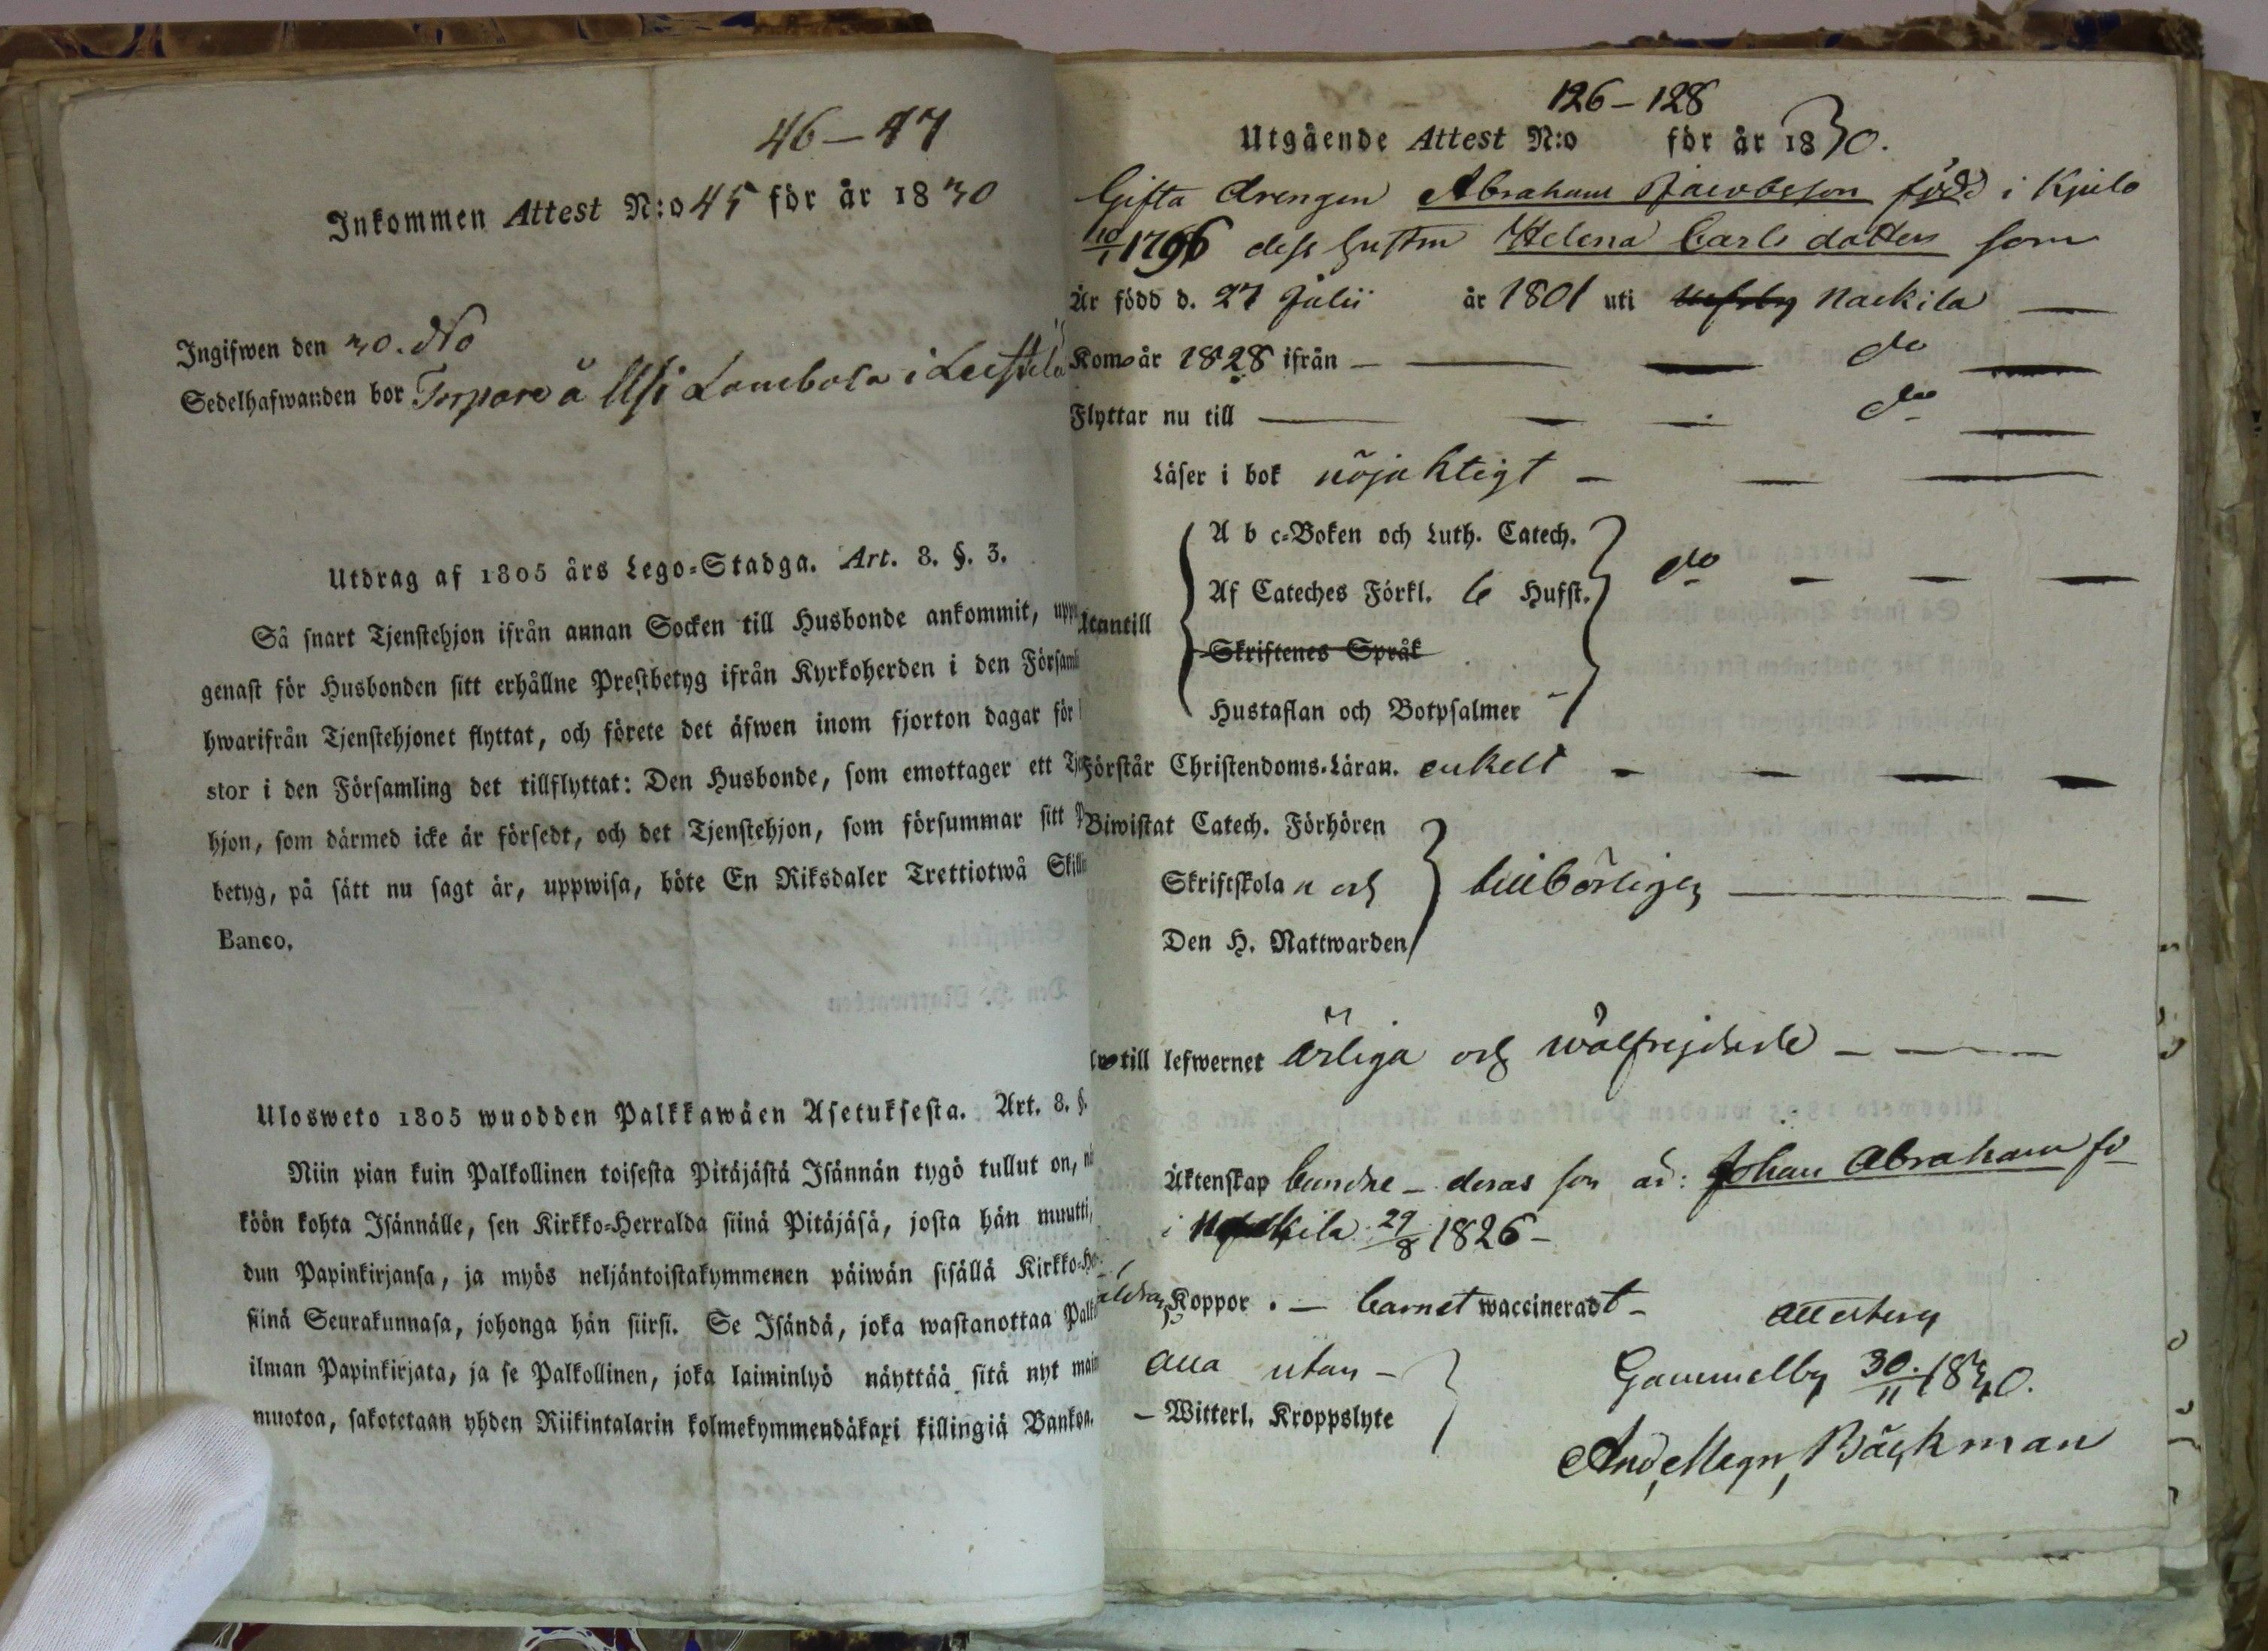 46-47
Inkommen Attest N:o 45 för år 1830
Ingifwen den 30. No
Sedelhafwanden bor Torpare å Usi Lambola i Leistilä
Utdrag af 1805 års Lego=Stadga. Art. 8. §. 3.
Så snart Tjenstehjon ifrån annan Socken till Husbonde ankommit, upp
genast för Husbonden sitt erhållne Prestbetyg ifrån Kyrkoherden i den Församl
hwarifrån Tjenstehjonet flyttat, och förete det äfwen inom fjorton dagar för
stor i den Församling det tillflyttat: Den Husbonde, som emottager ett Tj
hjon, som därmed icke är försedt, och det Tjenstehjon, som försummar sitt
betyg, på sätt nu sagt är, uppwisa, böte En Riksdaler Trettiotwå Skill
Banco.
Ulosweto 1805 wuodden Palkkawäen Asetuksesta. Art. 8. §.
Niin pian kuin Palkollinen toisesta Pitäjästä Isännän tygö tullut on,
köön kohta Isännälle, sen Kirkko=Herralda siinä Pitäjäsä, josta hän muutti,
dun Papinkirjansa, ja myös neljäntoistakymmenen päiwän sisällä Kirkko=He
siinä Seurakunnasa, johonga hän siirsi. Se Isändä, joka wastanottaa Palk
ilman Papinkirjata, ja se Palkollinen, joka laiminlyö näyttää sitä nyt main
muotoa, sakotetaan yhden Riikintalarin kolmekymmendäkaxi killingiä Bankoa.
126-128
Utgående Attest N:o för år 1830.
Gifta drengen Abraham Jacobsson född i Kjulo
10/1 1796 dess hustru Helena Carls dotter som
Är född d. 27 Julii år 1801 uti Nackila
Kom år 1828 ifrån — do
Flyttar nu till — do
Läser i bok nöjaktigt —
A b c=Boken och Luth. Catech.
Af Cateches Förkl. 6 Hufst. do
Utantill
Skriftenes Språk
Hustaflan och Botpsalmer
Förstår Christendoms-Läran. enkelt
Biwistat Catech. Förhören
Skriftskolan och tillbörligen
Den H. Nattwarden
till lefwernet ärliga och wälfrejdade
Äktenskap bundne - deras son är: Johan Abraham fö
i Nackila 29/8 1826 -
Koppor. - barnet waccineradt -
alla utan -
- Witterl. Kroppslyte
Gammelby 30/11 1830.
And. Magn. Bäckman